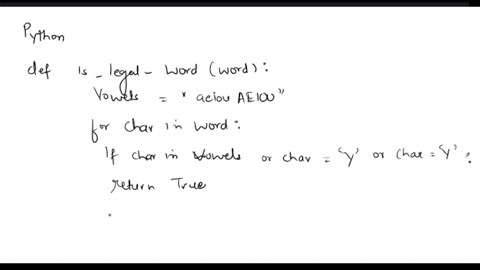 Python
def is_legal_word(word):
Vowels = "aeiou AEIOU"
for char in word:
If char in vowels or char = 'y' or char = 'Y':
return True